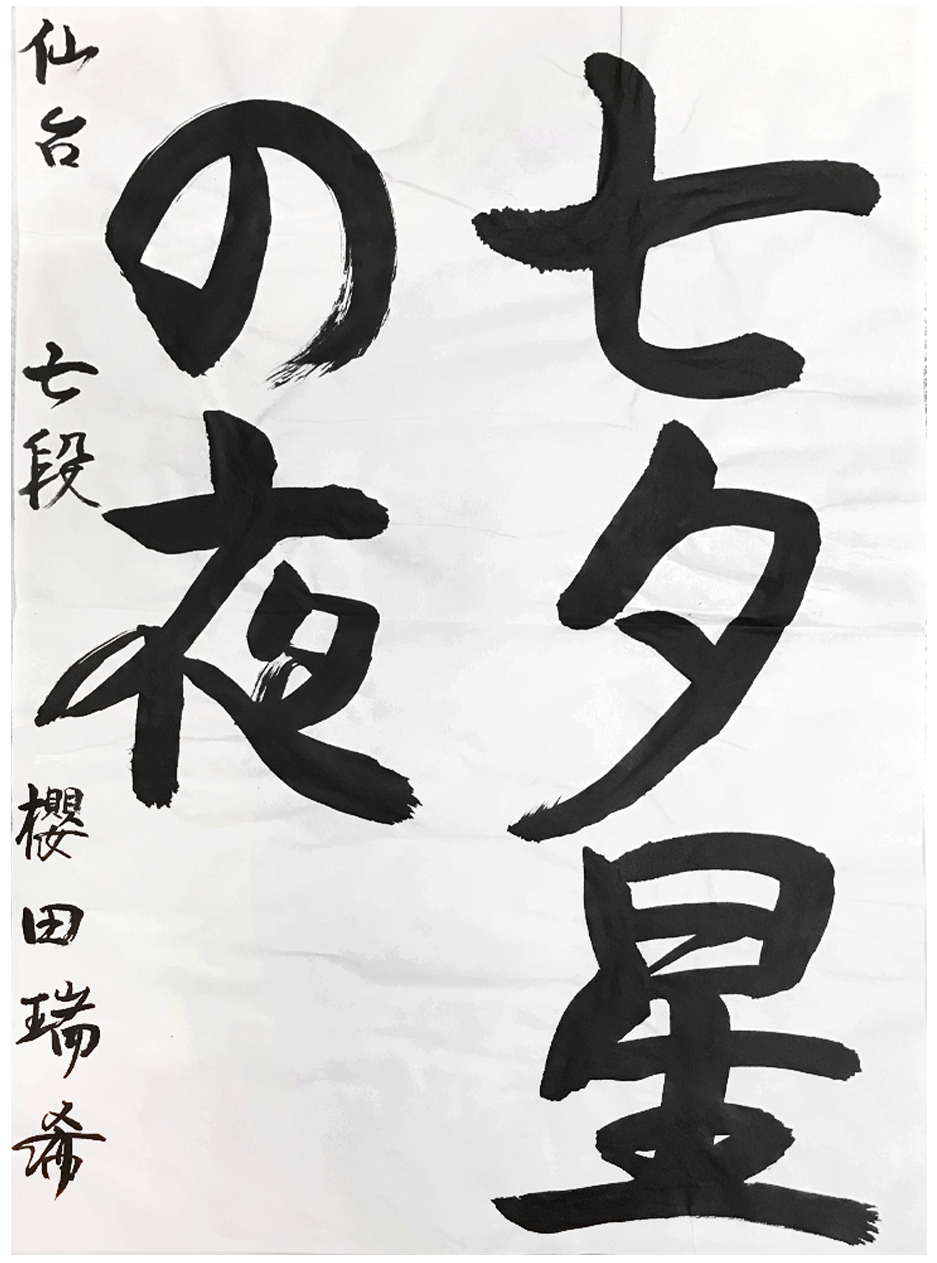 七夕星
の夜
仙台 七段 櫻田瑞希